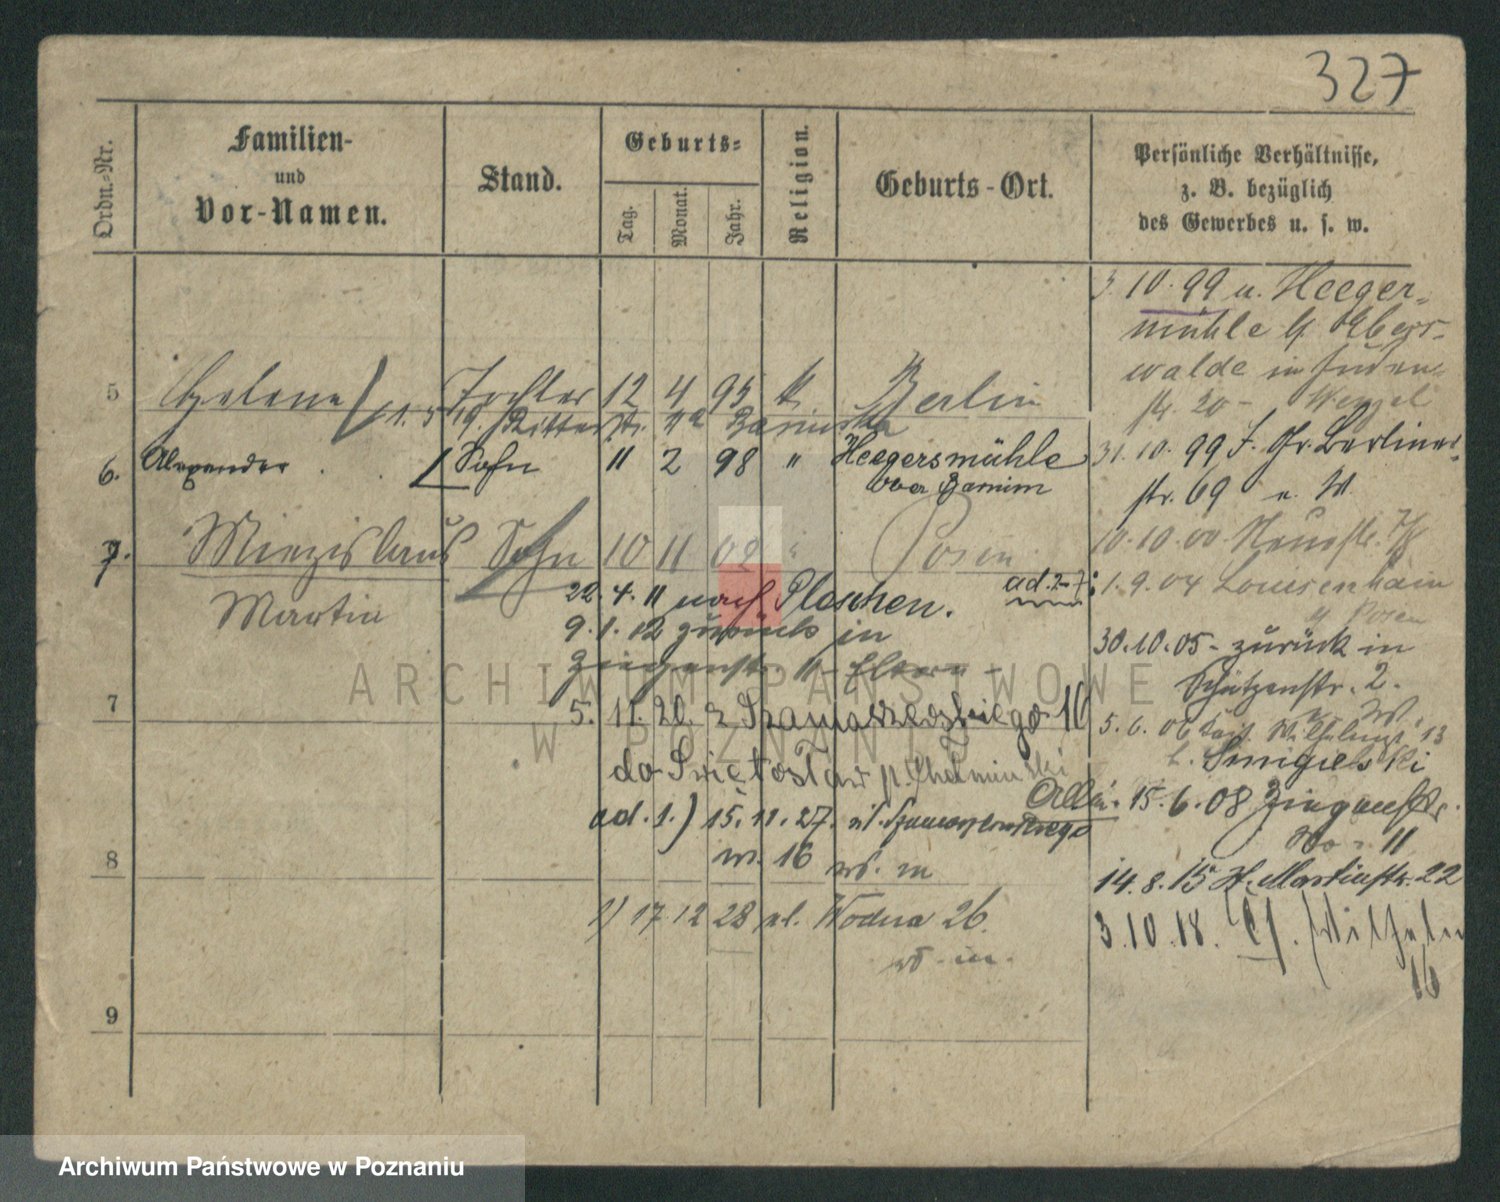 327
Ordn.-Nr.
Familien-
und
Vor-Namen.
Stand.
Geburts-
Tag.
Monat.
Jahr.
Religion.
Geburts-Ort.
Persönliche Verhältnisse,
z. B. bezüglich
des Gewerbes u. s. w.
3. 10. 99 u. Heeger-
mühle b/ Ebers-
walde in
str. 20 -
5 Helene Tochter 12 4 95 k. Berlin
19. Ritterstr.
6. Alexander Sohn 11 2 98 " Heegersmühle
Ober Barnim
31. 10. 99 Berliner-
str. 69 u. W.
7. Miezislaus Sohn 10 11 02 " Posen
Martin
10. 10. 00.
ad. 2-7: 1. 9. 04 Louisenhain
b/ Posen
22. 4. 11 nach Pleschen.
9. 1. 12 zurück in
Ziegenstr. 11 - Eltern -
30. 10. 05 - zurück in
Schützenstr. 2.
7
5. 11. 20. z Szamarzewskiego 16
do Świętosław p. Chełmiński
5. 6. 06 Wilhelmstr. 13
b. Smigielski
Allein. 15. 6. 08 Ziegenstr.
No. 11
ad. 1.) 15. 11. 27. ul. Szamarzewskiego
nr. 16 w. m
8
14. 8. 15 St. Martinstr. 22
1) 17 12 28 ul. Wodna 26.
w. m.
3. 10. 18. Wilhelm
16
9
ARCHIWUM PAŃSTWOWE
W POZNANIU
Archiwum Państwowe w Poznaniu